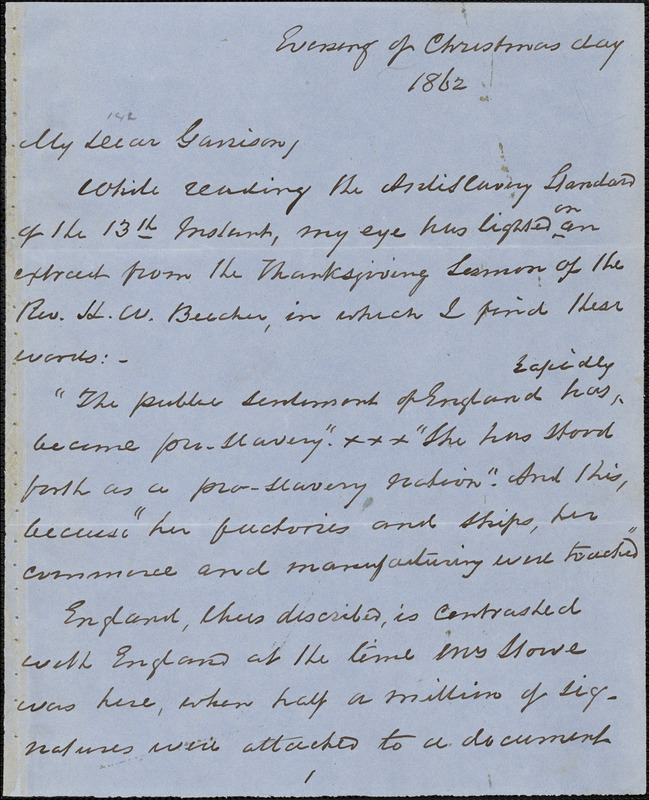 Evening of Christmas day
1862
142
My Dear Garrison,
While reading the Antislavery Standard
of the 13th Instant, my eye has lighted on an
extract from the Thanksgiving Sermon of the
Rev. H. W. Beecher, in which I find these
words:-
"The public sentiment of England has, rapidly
become pro-slavery". x x x "She has stood
forth as a pro-slavery nation". And this,
because "her factories and ships, her
commerce and manufacturing were touched"
England, thus described, is contrasted
with England at the time Mrs Stowe
was here, when half a million of sig-
natures were attached to a document
1